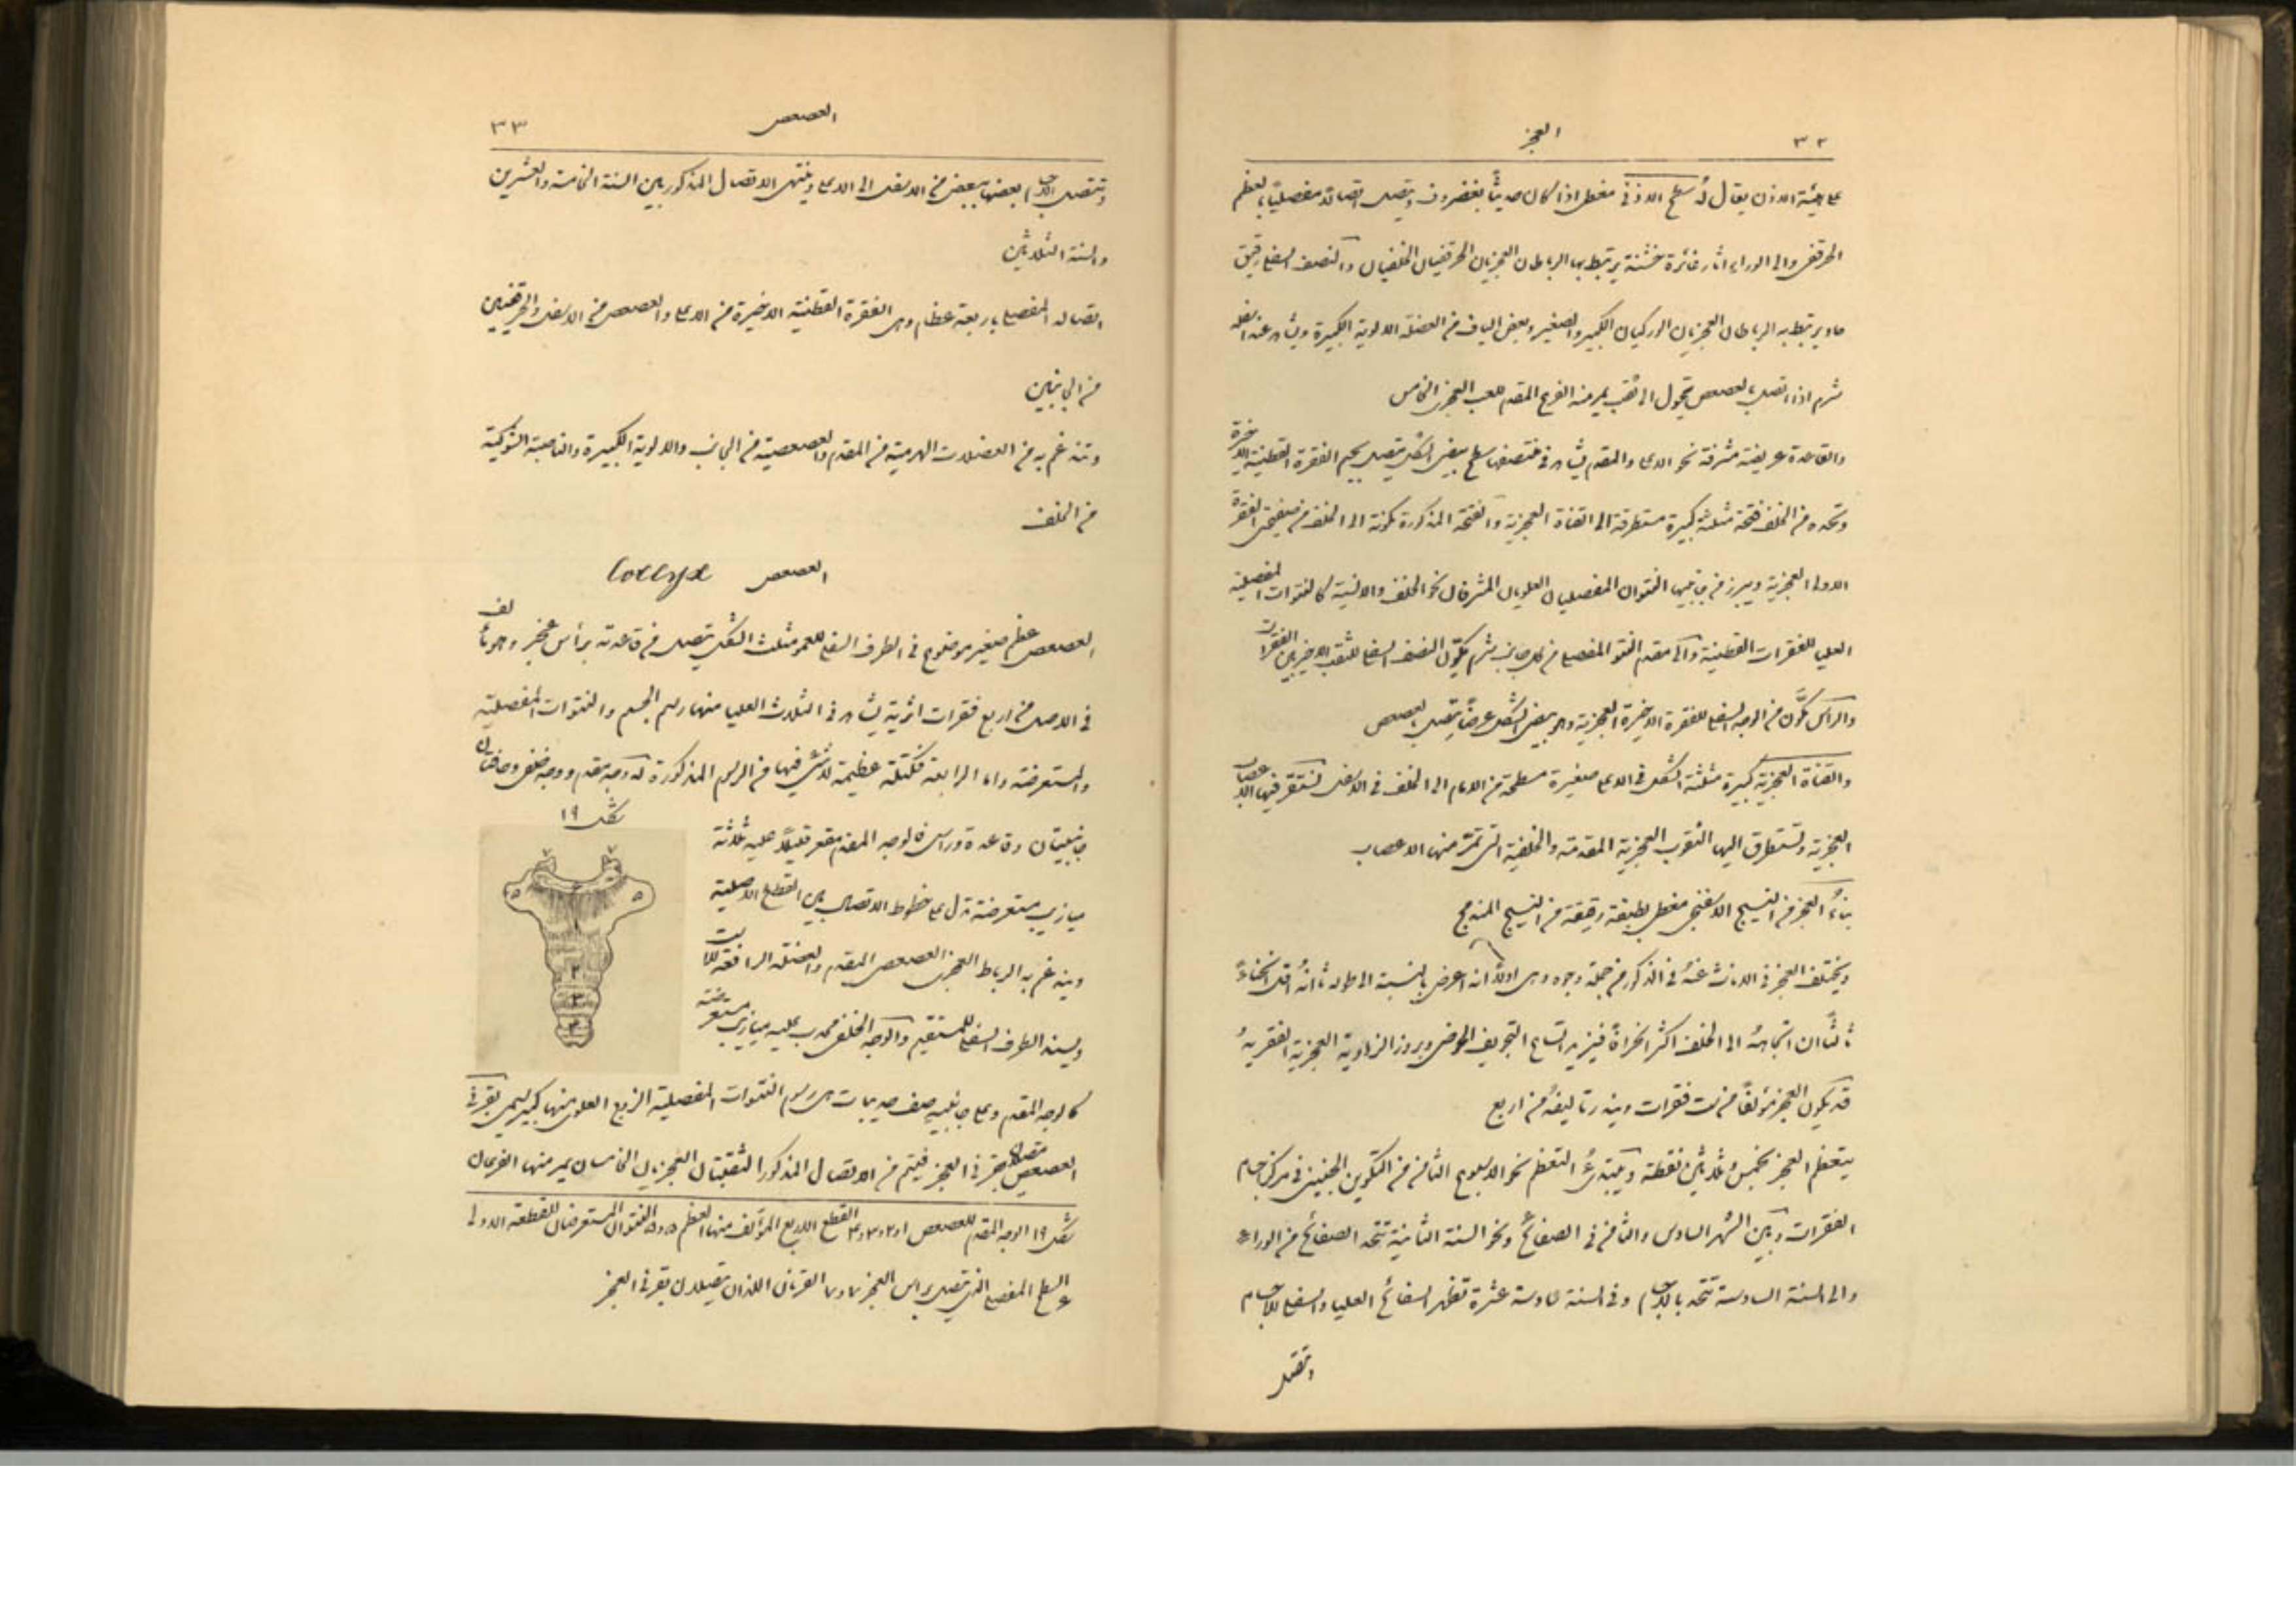 ٣٢
العجز
على هيئة الاذن يقال لهُ سطح الاذني مغطى اذا كان حديثاً بغضروف ويتصل اتصالاً مفصلياً بالعظم
الحرقفي والى الوراء اثار غائرة خشنة يرتبط بها الرباطان العجزيان الحرقفيان الخلفيان والنصف السفلي رقيق
حاد يرتبط به الرباطان العجزيان الوركيان الكبير والصغير وبعض الياف من العضلة الالوية الكبيرة ويشاهد عند اسفله
شرم اذا اتصل بالعصعص تحول الى ثقب يمر منه الفرع المقدم للعصب العجزي الخامس
والقاعدة عريضة مشرفة نحو الاعلى والمقدم يشاهد في منتصفها سطح بيضي الشكل يتصل بجسم الفقرة القطنية الاخيرة
وتحده من الخلف فتحة مثلثة كبيرة مستطرقة الى القناة العجزية والفتحة المذكورة مكونة الى الخلف من صفيحتي الفقرة
الاولى العجزية ويبرز من جانبيها النتوان المفصليان العلويان المشرفان نحو الخلف والانسية كالنتوات المفصلية
العليا للفقرات القطنية والى مقدم النتو المفصلي من كل جانب شرم يكوّن النصف السفلي للثقب الاخير بين الفقرات
والراس مكوَّن من الوجه السفلي للفقرة الاخيرة العجزية وهو بيضي الشكل عرضاً يتصل بالعصعص
والقناة العجزية كبيرة مثلثة الشكل في الاعلى صغيرة مسطحة من الامام الى الخلف في الاسفل تستقر فيها الاعصاب
العجزية وتستطرق اليها الثقوب العجزية المقدمة والخلفية التي تمر منها الاعصاب
بناءُ العجز من النسيج الاسفنجي مغطى بطبقة رقيقة من النسيج المندمج
ويختلف العجز في الاناث عنهُ في الذكور من جملة وجوه وهي اولاً انه اعرض بالنسبة الى طوله ثانياً انهُ اقل انحناءً
ثالثاً ان اتجاههُ الى الخلف اكثر انحرافاً فيزيد اتساع التجويف الحوضي وبروز الزاوية العجزية الفقرية
قد يكون العجز مؤلفاً من ست فقرات ويندر تاليفهُ من اربع
يتعظم العجز بخمس وثلاثين نقطة ويبتدئُ التعظم نحو الاسبوع الثامن من التكوين الجنيني في مركز اجسام
الفقرات وبين الشهر السادس والثامن في الصفائح ونحو السنة الثانية تتحد الصفائح من الوراء
والى السنة السادسة تتحد بالاجسام وفي السنة السادسة عشرة تظهر الصفائح العليا والسفلى للاجسام
وتتصل
٣٣
العصعص
وتتصل الاجسام بعضها ببعض من الاسفل الى الاعلى وينتهي الاتصال المذكور بين السنة الخامسة والعشرين
والسنة الثلاثين
اتصاله المفصلي باربعة عظام وهي الفقرة القطنية الاخيرة من الاعلى والعصعص من الاسفل والحرقفيين
من الجانبين
وتندغم به من العضلات الهرمية من المقدم والعصعصية من الجانب والالوية الكبيرة والناصبة الشوكية
من الخلف
العصعص Coccyx
العصعص عظم صغير موضوع في الطرف السفلي للعمود مثلث الشكل يتصل من قاعدته براس العجز وهو مؤلف
في الاصل من اربع فقرات اثرية يشاهد في الثلاث العليا منها رسم الجسم والنتوات المفصلية
والمستعرضة واما الرابعة فكتلة عظمية لا شي فيها من الرسوم المذكورة له وجه مقدم ووجه خلفي وحافتان
شكل ١٩
جانبيتان وقاعدة وراس فالوجه المقدم مقعر قليلاً عليه ثلاثة
ميازيب مستعرضة تدل على خطوط الاتصال بين القطع الاصلية
ويندغم به الرباط العجزي العصعصي المقدم والعضلة الرافعة للاست
ويسند الطرف السفلي للمستقيم والوجه الخلفي محدب عليه ميازيب مستعرضة
كالوجه المقدم وعلى جانبيه صف حديبات هي رسوم النتوات المفصلية الزوج العلوي منها كبير يسمى بقرني
العصعص متصلان بقرني العجز فيتم من الاتصال المذكور الثقبتان العجزيان الخامسان يمر منهما الفرعان
شكل ١٩ الوجه المقدم للعصعص ١ و٢ و٣ و٤ القطع الاربع المؤلف منها العظم ٥ و٥ النتوان المستعرضان للقطعة الاولى
٦ السطح المفصلي الذي يتصل براس العجز ٧ و٧ القرنان اللذان يتصلان بقرني العجز